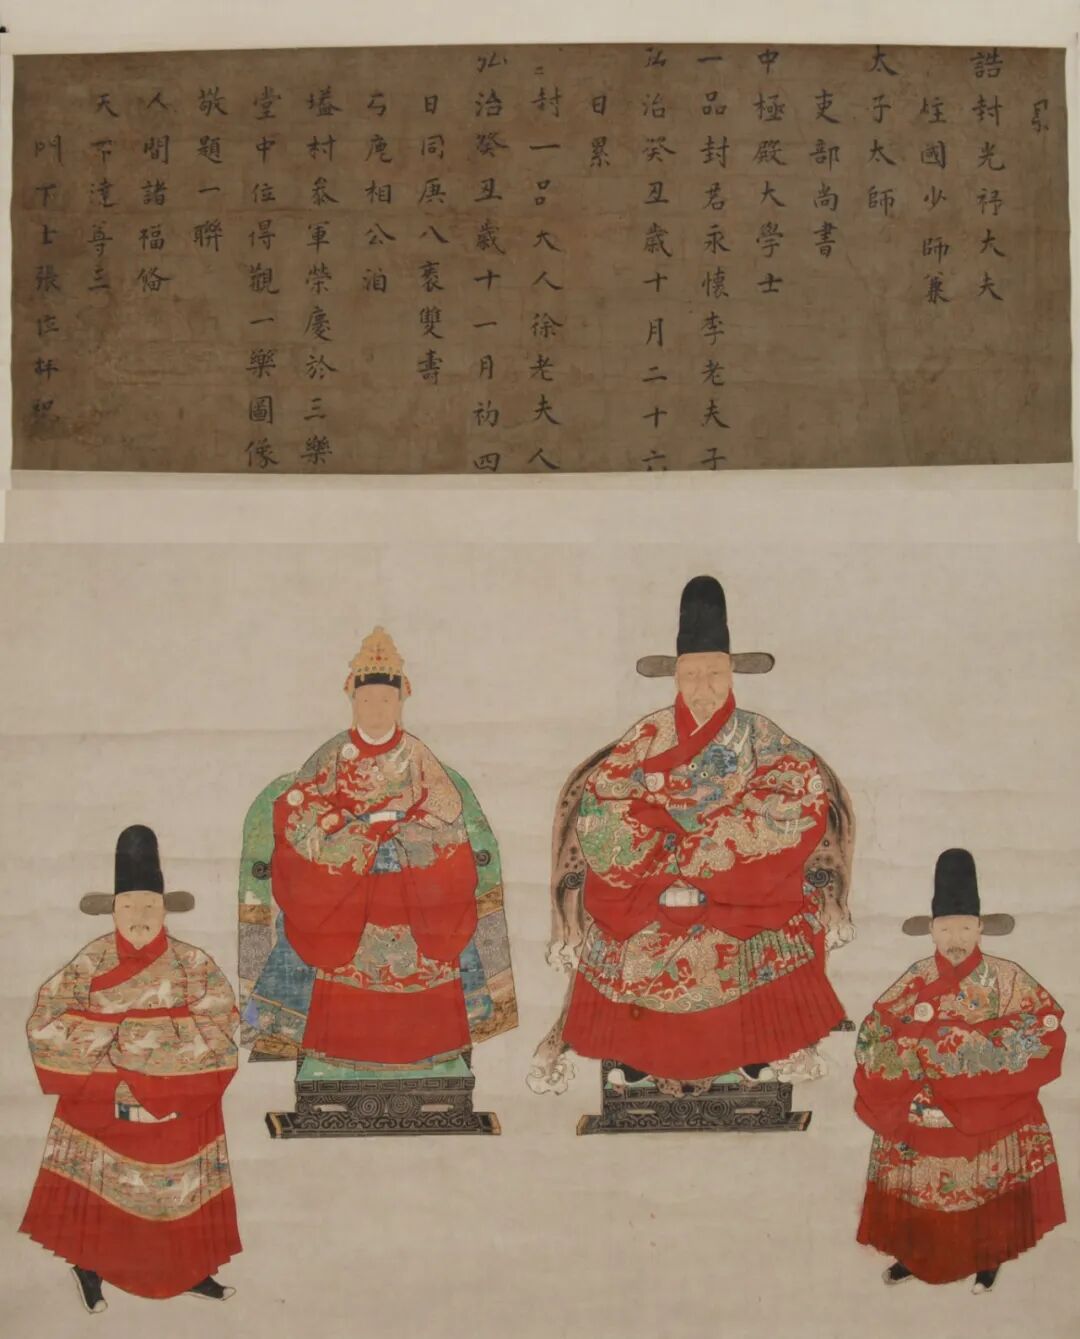 累
誥封光祿大夫
柱國少師兼
太子太師
吏部尚書
中極殿大學士
一品封君永懷李老夫子
弘治癸丑歲十月二十六
日累
封一品太夫人徐老夫人
弘治癸丑歲十一月初四
日同庚八袠雙壽
相公洎
村叅軍榮慶於三樂
堂中位得觀一樂圖像
敬題一聯
人間諸福備
天下達尊三
門下士張位拜祝